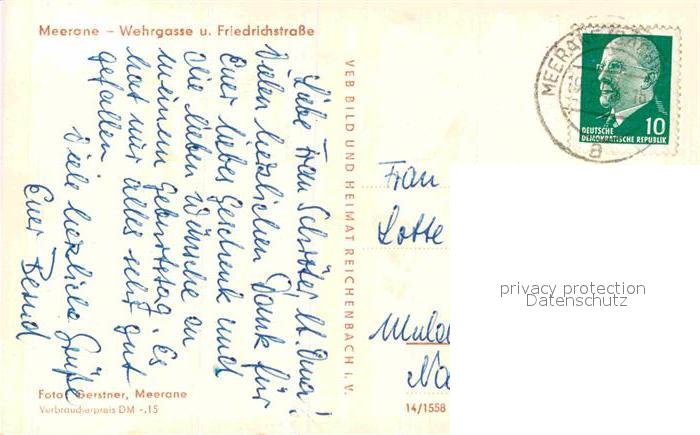 Meerane – Wehrgasse u. Friedrichstraße
Liebe Frau Schröter, lb. Oma!
Vielen herzlichen Dank für
Euer liebes Geschenk und
die lieben Wünsche zu
meinem Geburtstag. Es
hat mir alles sehr gut
gefallen
Viele herzliche Grüße
Euer Bernd
Foto: Gerstner, Meerane
Verbraucherpreis DM -.15
VEB BILD UND HEIMAT REICHENBACH i. V.
MEERANE
a
10
DEUTSCHE
DEMOKRATISCHE REPUBLIK
Frau
Lotte
Mulda
Na
14/1558
privacy protection
Datenschutz